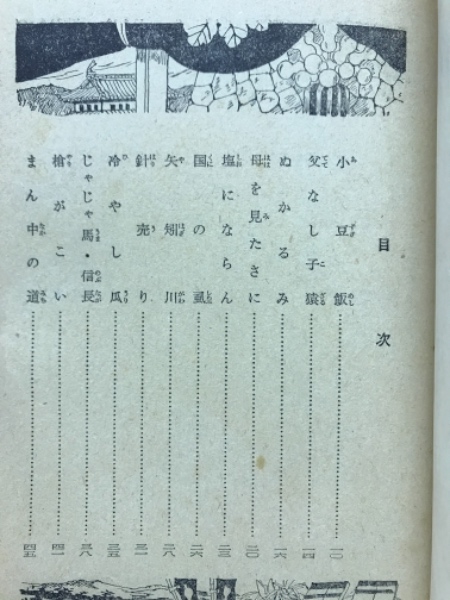 目次
小豆飯……一〇
父なし子猿……一四
ぬかるみ……一六
母を見たさに……二〇
塩にならん……二三
国の虱……二六
矢矧川……二八
針売り……三一
冷やし瓜……三五
じゃじゃ馬・信長……三八
槍がこい……四一
まん中の道……四五